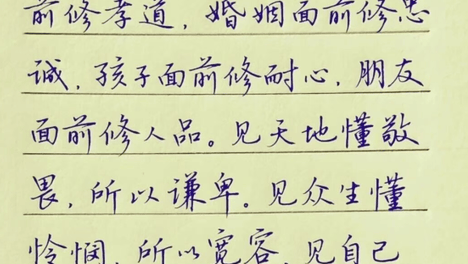 前修孝道，婚姻面前修忠
诚，孩子面前修耐心，朋友
面前修人品。见天地懂敬
畏，所以谦卑。见众生懂
怜悯，所以宽容，见自己